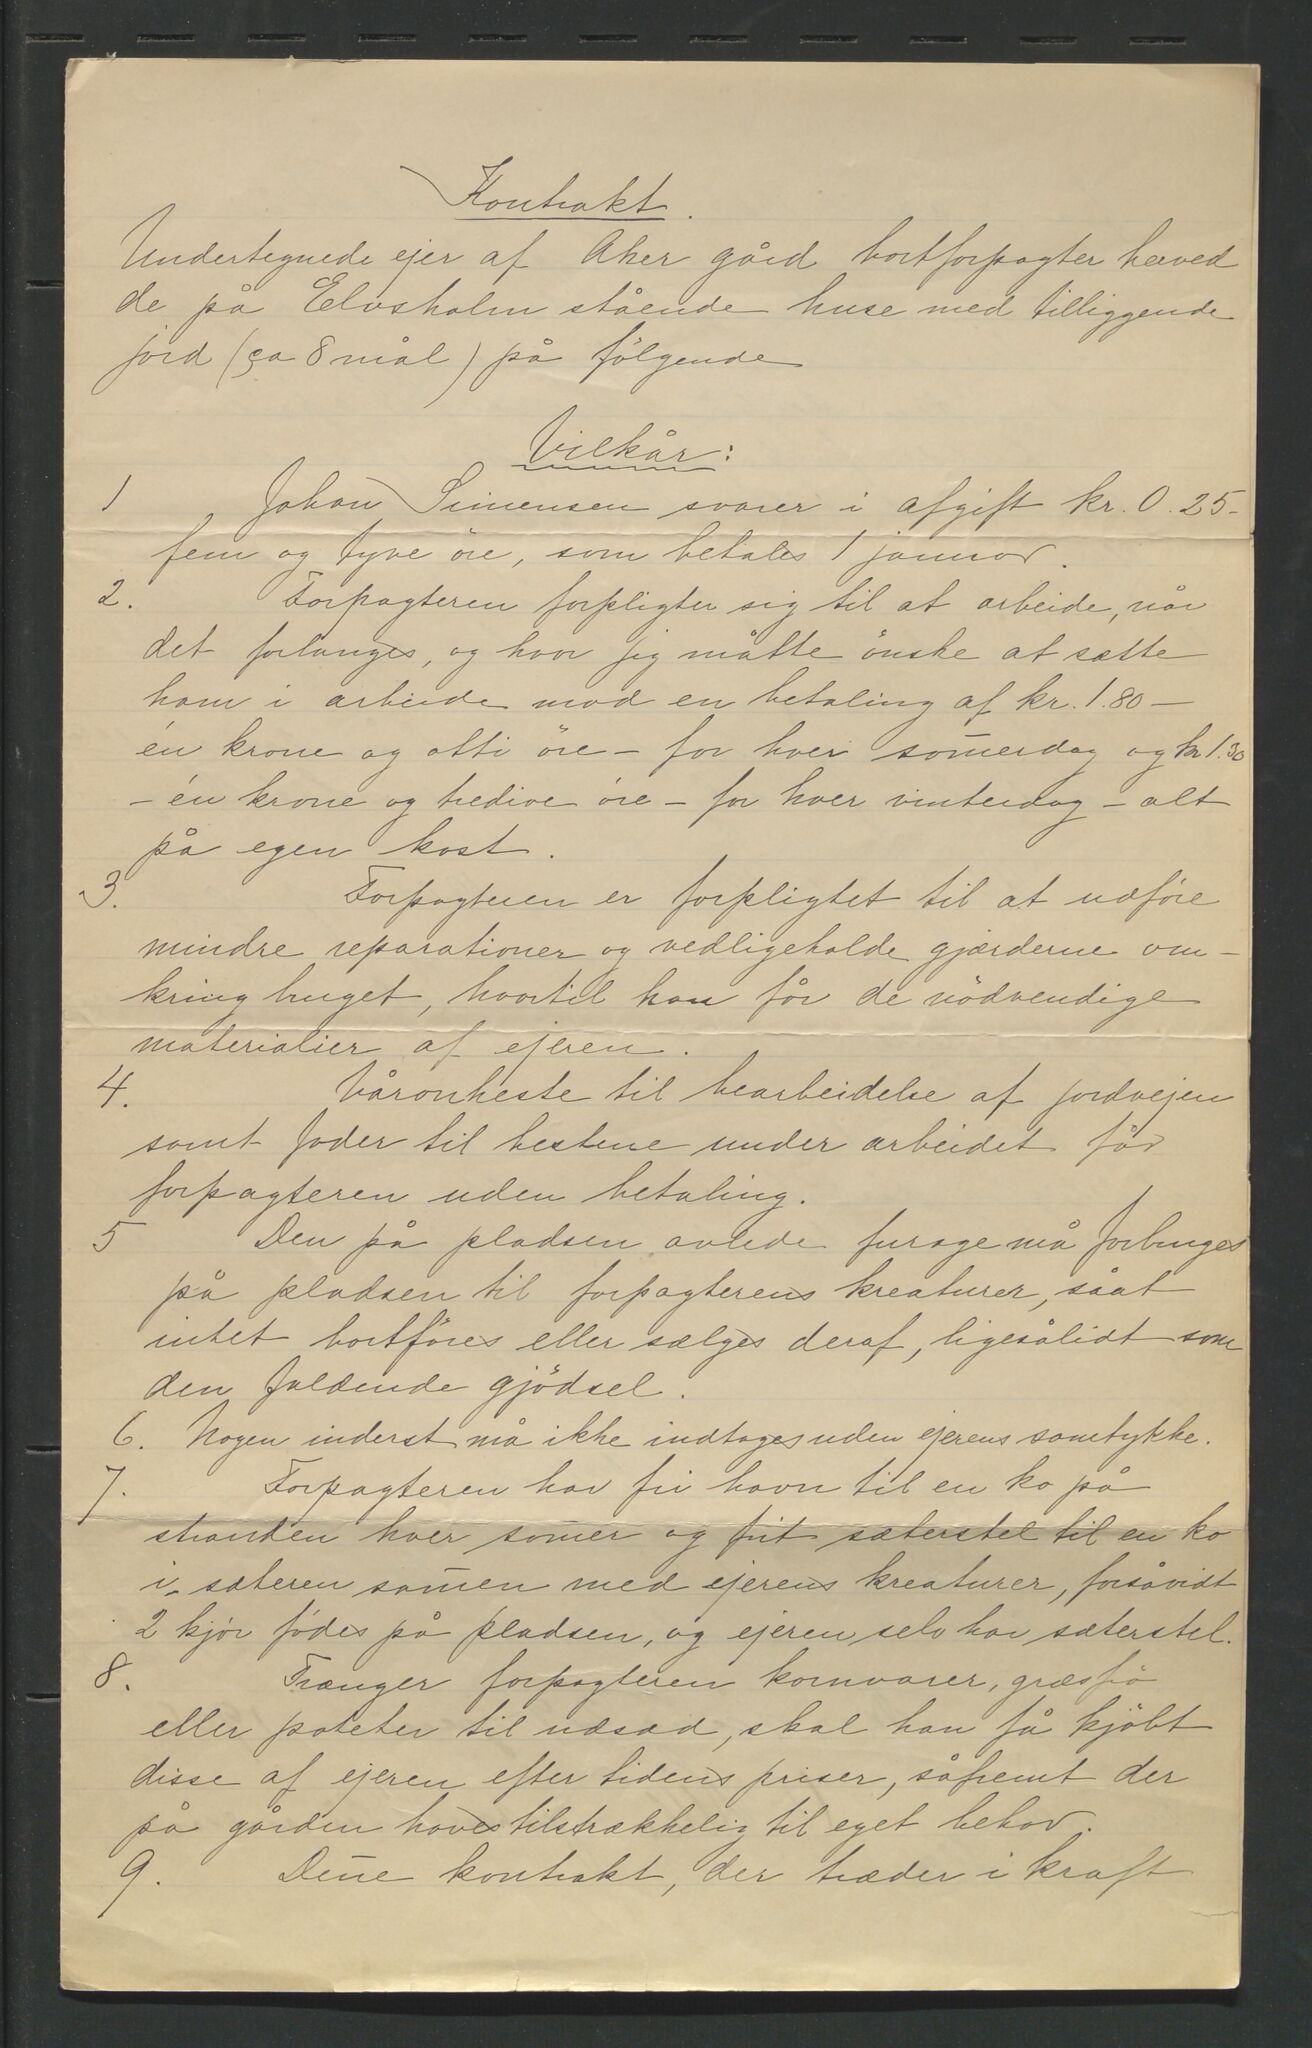 Kontrakt.
Undertegnede ejer af Aker gård bortforpagter herved
de på Elvsholm stående huse med tilliggende
jord (ca 8 mål) på følgende
Vilkår:
1 Johan Simensen svarer i afgift kr. 0.25-
fem og tyve öre, som betales 1 januar.
2. Forpagteren forpligter sig til at arbeide, når
det forlanges, og hvor jeg måtte önske at sætte
ham i arbeide mod en betaling af kr. 1.80 —
én krone og otti öre – for hver som̄erdag og kr 1.30
– én krone og tredive öre – for hver vinterdag – alt
på egen kost.
3. Forpagteren er forpligtet til at udföre
mindre reparationer og vedligeholde gjærderne om-
kring bruget, hvortil han får de nödvendige
materialier af ejeren.
4. Våronheste til bearbeidelse af jordvejen
samt foder til hestene under arbeidet får
forpagteren uden betaling.
5 Den på pladsen avlede furage må forbruges
på pladsen til forpagterens kreaturer, såat
intet bortföres eller sælges deraf, ligesålidt som
den faldende gjödsel.
6. Nogen inderst må ikke indtages uden ejerens samtykke.
7. Forpagteren har fri havn til en ko på
stranden hver som̄er og frit sæterstel til en ko
i sæteren sam̄en med ejerens kreaturer, forsåvidt
2 kjör födes på pladsen, og ejeren selv har sæterstel.
8. Trænger forpagteren kornvarer, græsfrö
eller poteter til udsæd, skal han få kjöbt
disse af ejeren efter tidens priser, såfremt der
på gården haves tilstrækkelig til eget behov.
9. Den̄e kontrakt, der træder i kraft